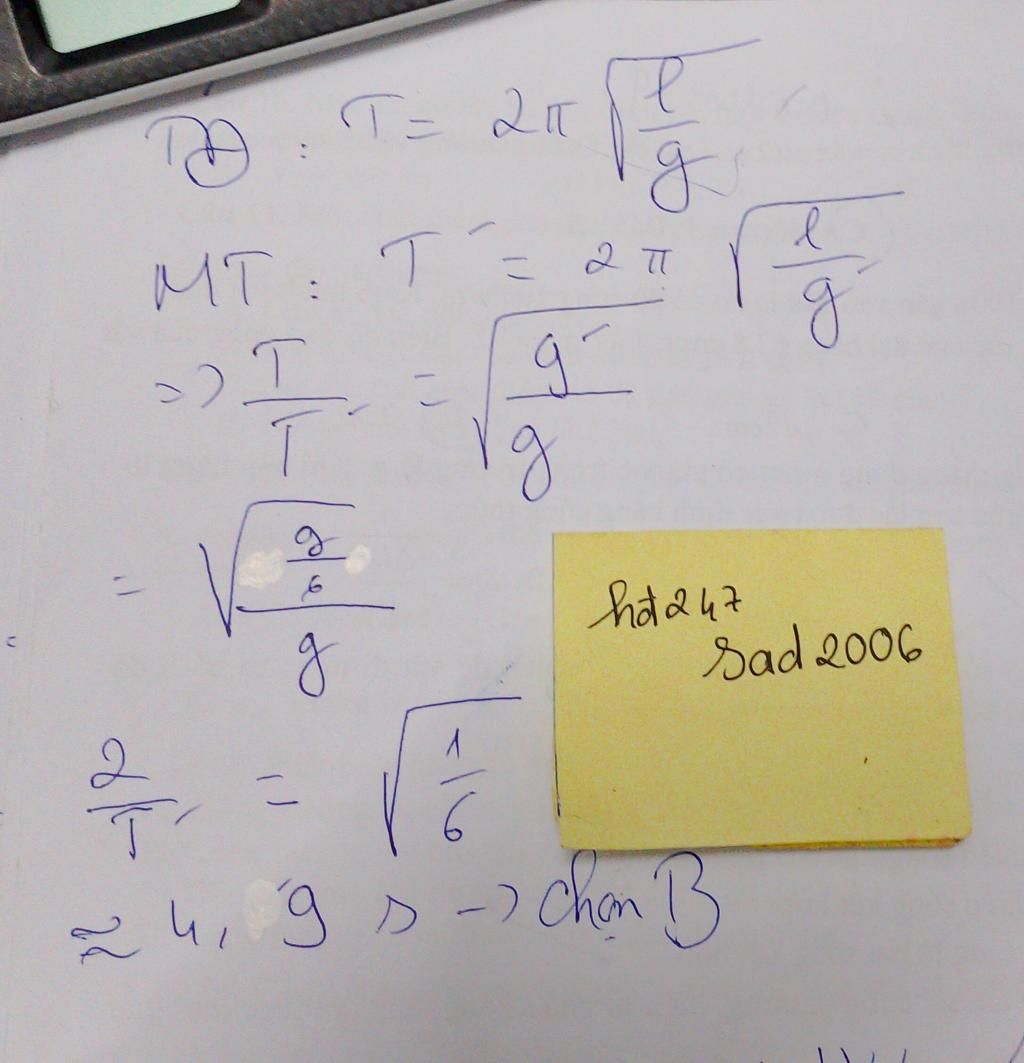 TĐ : T = 2π √(l/g)
MT : T' = 2π √(l/g')
=> T/T' = √(g'/g)
= √((g/6)/g)
2/T' = √(1/6)
≈ 4,9 s -> chọn B
hđ247
sad2006